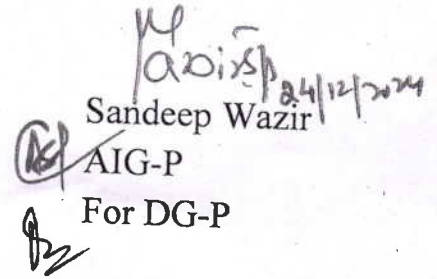 24/12/2024
Sandeep Wazir
AIG-P
For DG-P